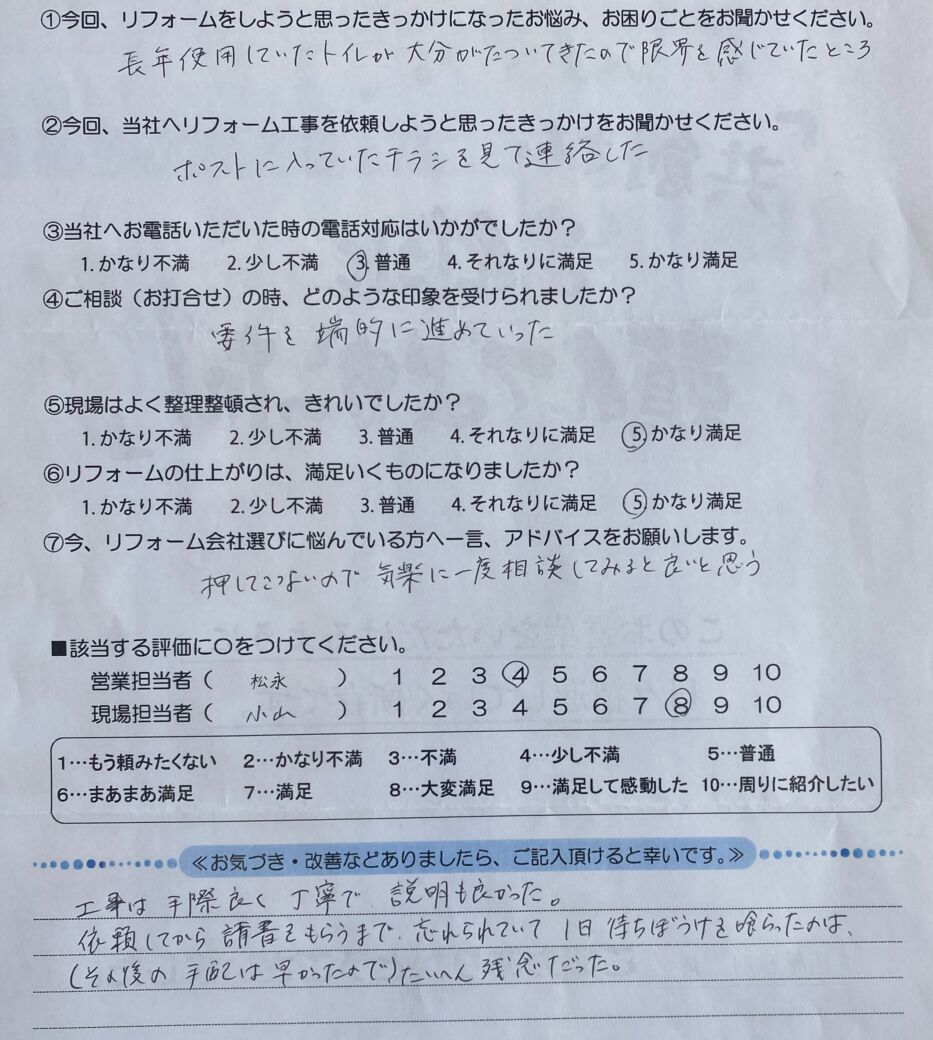 ①今回、リフォームをしようと思ったきっかけになったお悩み、お困りごとをお聞かせください。
長年使用していたトイレが大分がたついてきたので限界を感じていたところ
②今回、当社へリフォーム工事を依頼しようと思ったきっかけをお聞かせください。
ポストに入っていたチラシを見て連絡した
③当社へお電話いただいた時の電話対応はいかがでしたか?
1.かなり不満 2.少し不満 3.普通 4.それなりに満足 5.かなり満足
④ご相談(お打合せ)の時、どのような印象を受けられましたか?
要件を端的に進めていった
⑤現場はよく整理整頓され、きれいでしたか?
1.かなり不満 2.少し不満 3.普通 4.それなりに満足 5.かなり満足
⑥リフォームの仕上がりは、満足いくものになりましたか?
1.かなり不満 2.少し不満 3.普通 4.それなりに満足 5.かなり満足
⑦今、リフォーム会社選びに悩んでいる方へ一言、アドバイスをお願いします。
押してこないので気楽に一度相談してみると良いと思う
■該当する評価に〇をつけてください。
営業担当者( 松永 ) 1 2 3 4 5 6 7 8 9 10
現場担当者( 小山 ) 1 2 3 4 5 6 7 8 9 10
1…もう頼みたくない 2…かなり不満 3…不満 4…少し不満 5…普通
6…まあまあ満足 7…満足 8…大変満足 9…満足して感動した 10…周りに紹介したい
≪お気づき・改善などありましたら、ご記入頂けると幸いです。≫
工事は手際良く丁寧で、説明も良かった。
依頼してから請書をもらうまで、忘れられていて1日待ちぼうけを喰らったのは、
(その後の手配は早かったので)たいへん残念だった。